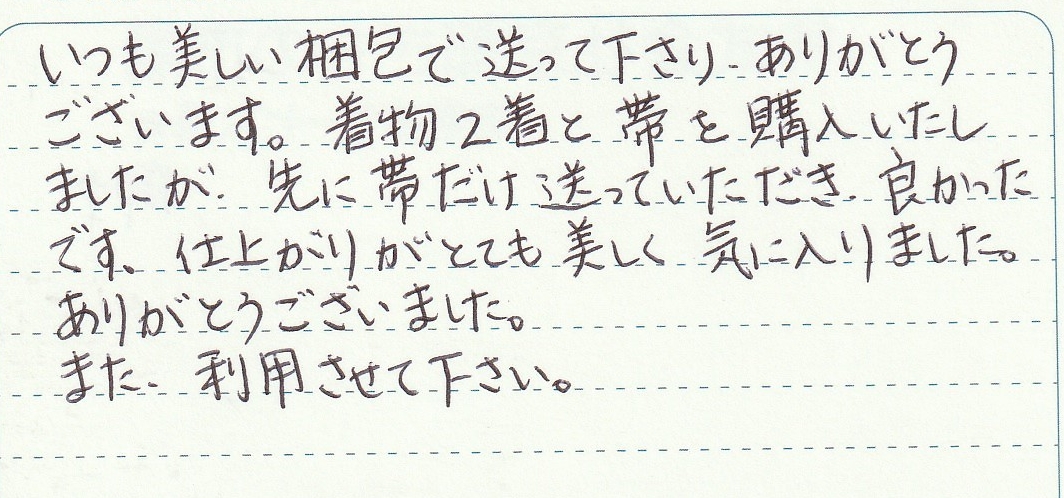 いつも美しい梱包で送って下さり、ありがとう
ございます。着物2着と帯を購入いたし
ましたが、先に帯だけ送っていただき、良かった
です。仕上がりがとても美しく気に入りました。
ありがとうございました。
また、利用させて下さい。